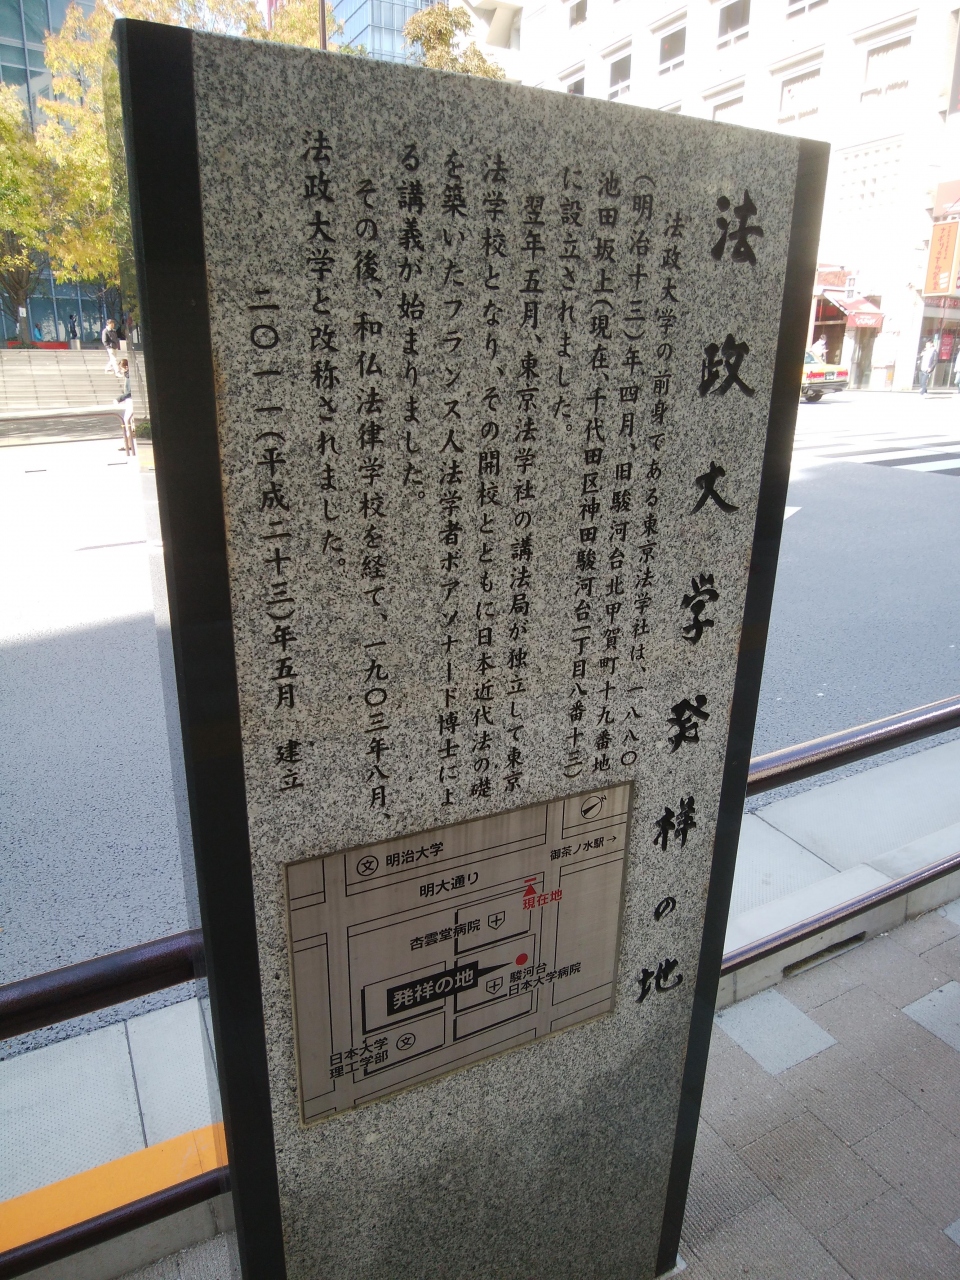 法政大学発祥の地
法政大学の前身である東京法学社は、一八八〇
(明治十三)年四月、旧駿河台北甲賀町十九番地
池田坂上(現在、千代田区神田駿河台一丁目八番十三)
に設立されました。
翌年五月、東京法学社の講法局が独立して東京
法学校となり、その開校とともに日本近代法の礎
を築いたフランス人法学者ボアソナード博士によ
る講義が始まりました。
その後、和仏法律学校を経て、一九〇三年八月、
法政大学と改称されました。
二〇一一(平成二十三)年五月 建立
文 明治大学
御茶ノ水駅→
明大通り
現在地
杏雲堂病院
発祥の地
駿河台
日本大学病院
日本大学
理工学部
文